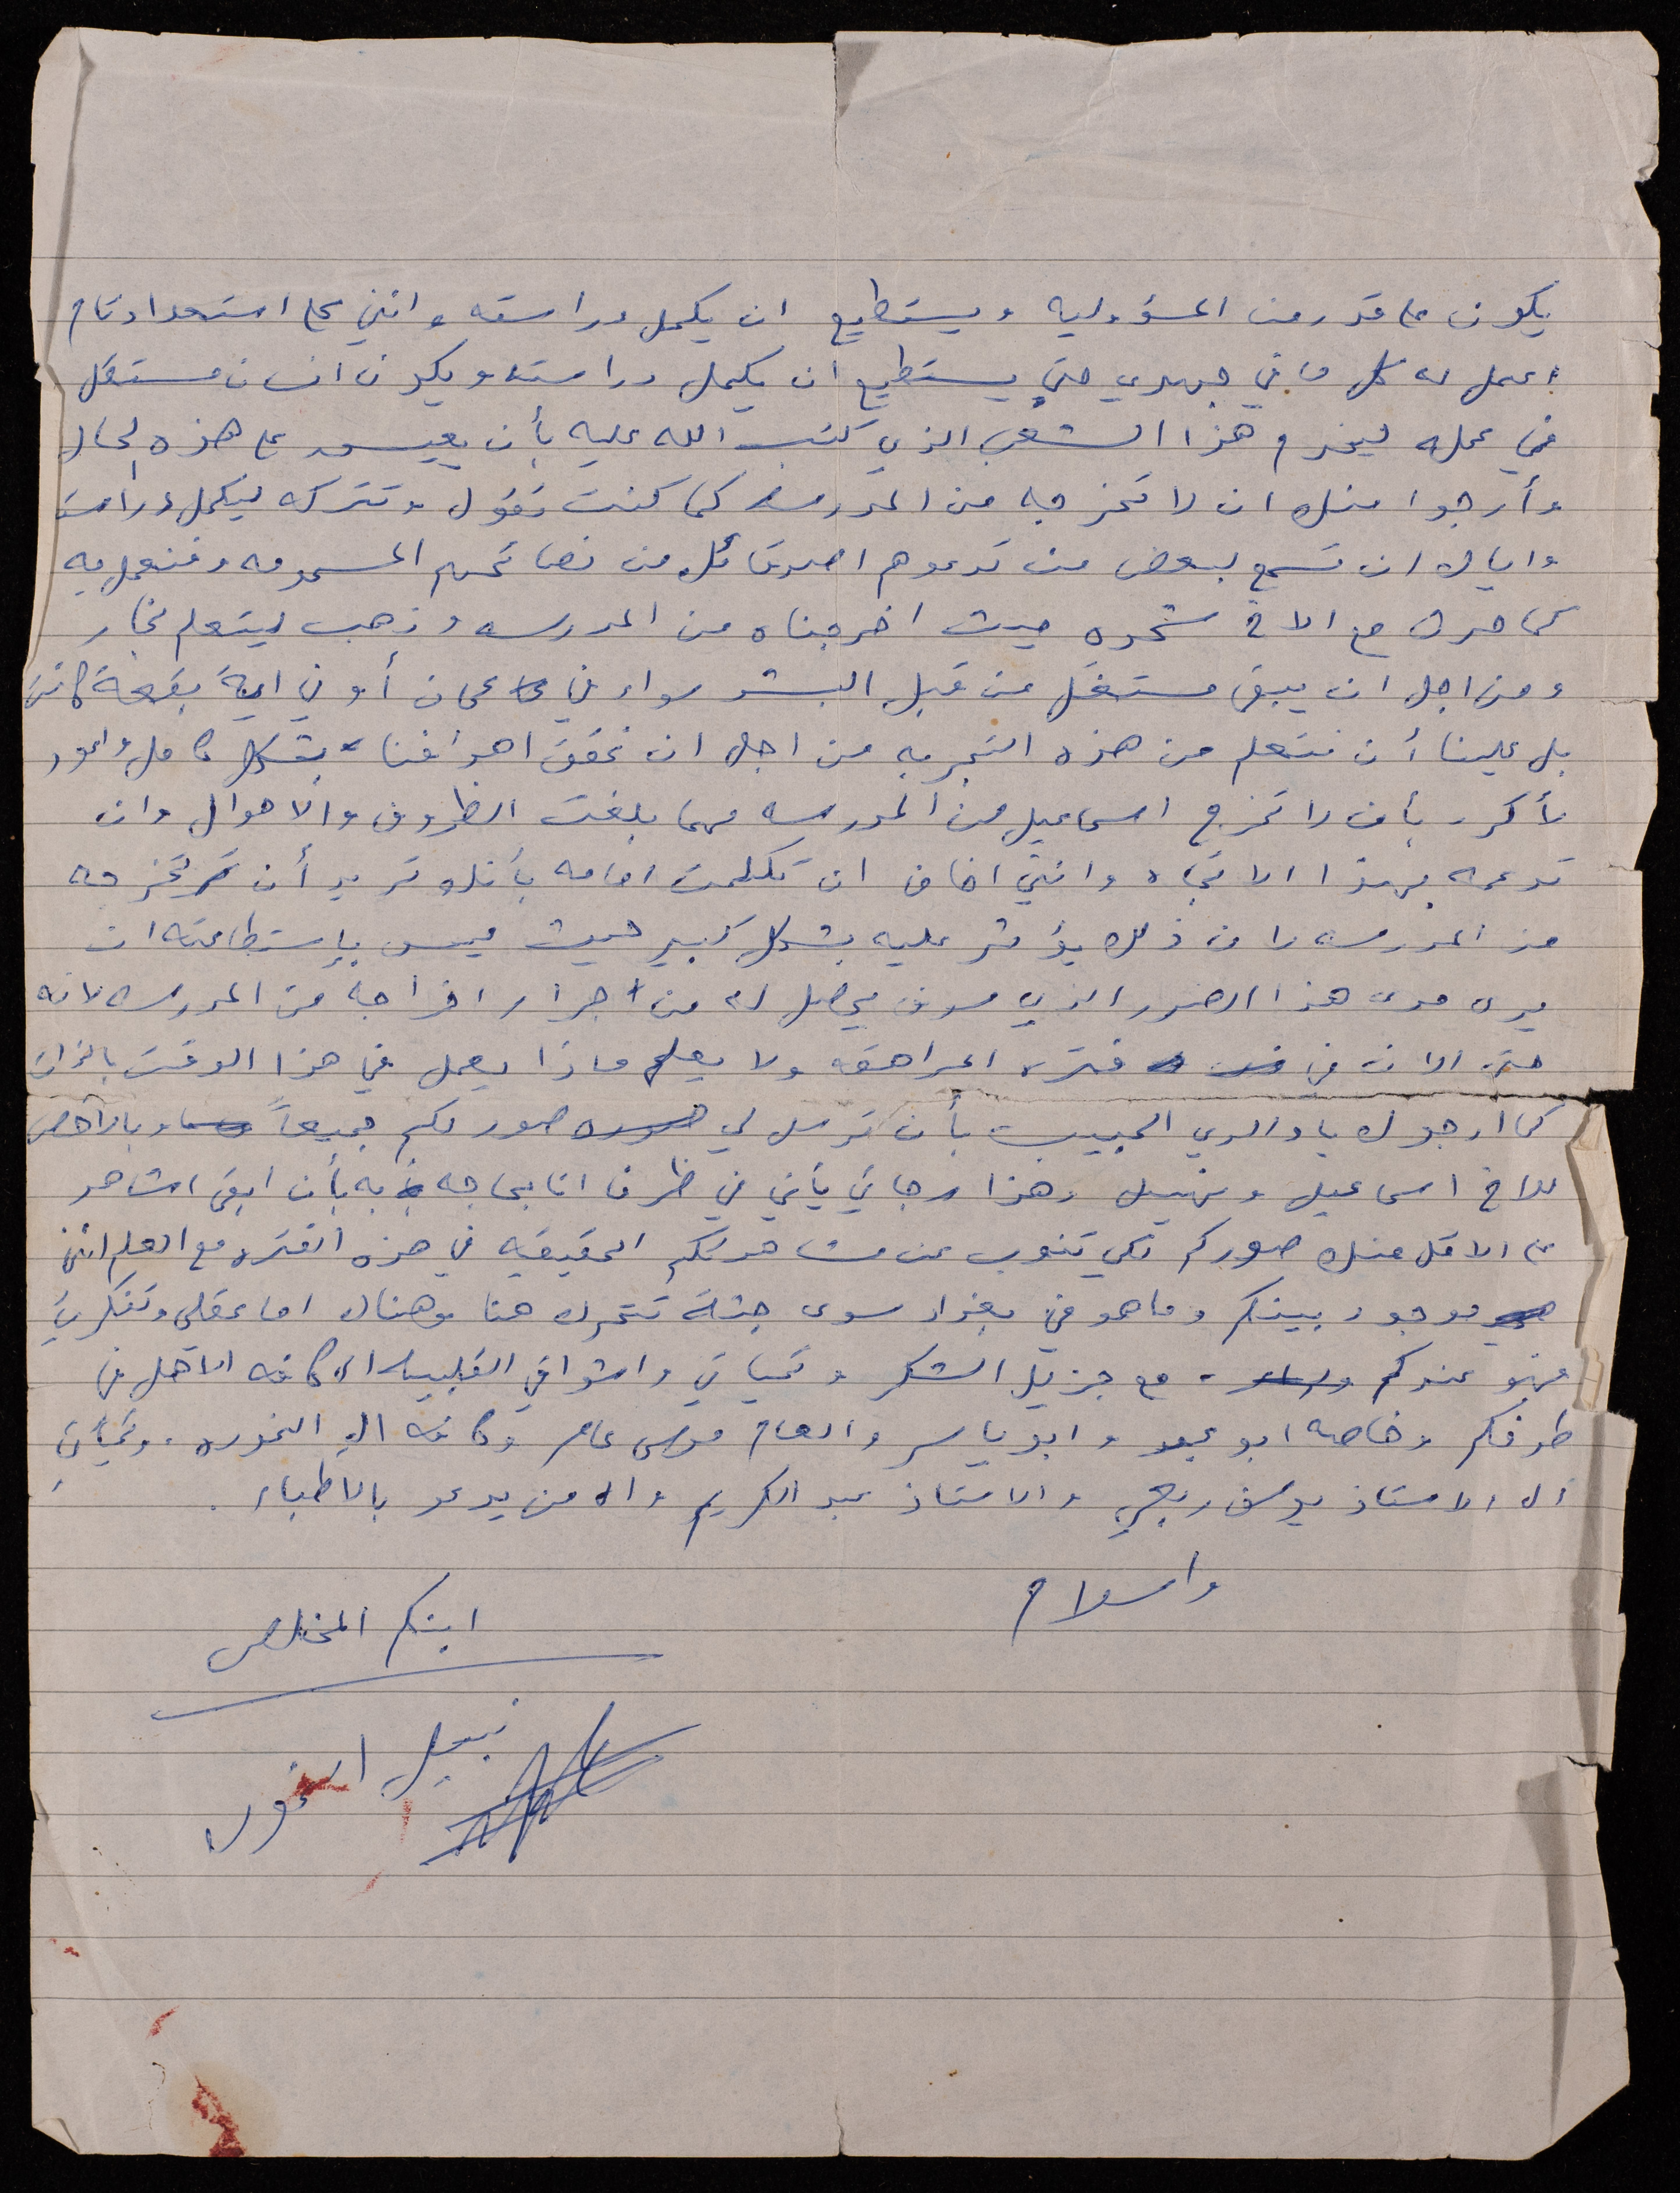 يكون على قدر من المسؤوليه ويستطيع ان يكمل دراسته وانني على استعداد تام
اعمل له كل ما في جهدي حتى يستطيع ان يكمل دراسته ويكون انسان مستقل
في عمله ليخدم هذا الشعب الذي كتب الله عليه بأن يعيش على هذه الحال
وأرجوا منك ان لا تخرجه من المدرسه كما كنت تقول وتتركه ليكمل دراسته
واياك ان تسمع لبعض من تدعوهم اصدقائك من نصائحهم المسمومه
كما حدث مع الاخ شحده حيث اخرجناه من المدرسه وذهب ليتعلم نجار
ومن اجل ان يبقى مستغل من قبل البشر سواء في عمان أو في اية بقعة كانت
بل علينا أن نتعلم من هذه التجربه من اجل ان نحقق اهدافنا بشكل كامل واعود
لأكرر بأن لا تخرج اسماعيل من المدرسه مهما بلغت الظروف والاهوال وان
تدعمه بهذا الاتجاه وانني اخاف ان تكلمت امامه بأنك تريد أن تخرجه
من المدرسه لان ذلك يؤثر عليه بشكل كبير حيث ليس بإستطاعته ان
يرى مدى هذا الضرر الذي سوف يحصل له من جراء اخراجه من المدرسه لانه
حتى الان في فترة المراهقه ولا يعلم ماذا يعمل في هذا الوقت بالذات
كما ارجوك يا والدي الحبيب بأن ترسل لي صور لكم جميعاً وبالاخص
للاخ اسماعيل ونهيل وهذا رجائي يأتي في ظرف انا بحاجه به بأن ابقى اشاهد
على الاقل منك صوركم لكي تنوب عن مشاهدتكم الحقيقيه في هذه الفتره مع العلم انني
موجود بينكم وما هو في بغداد سوى جثة تتحرك هنا وهناك اما عقلي وتفكيري
فهو عندكم . مع جزيل الشكر وتحياتي واشواقي القلبيه الى كافه الاهل في
طرفكم وخاصه ابو عبد وابو ياسر والعام موسى عامر وكافه ال النموره . وتحياتي
الى الاستاذ يوسف ربعي والاستاذ عبد الكريم والى من يدعو بالاطباء .
والسلام
ابنكم المخلص
نبيل